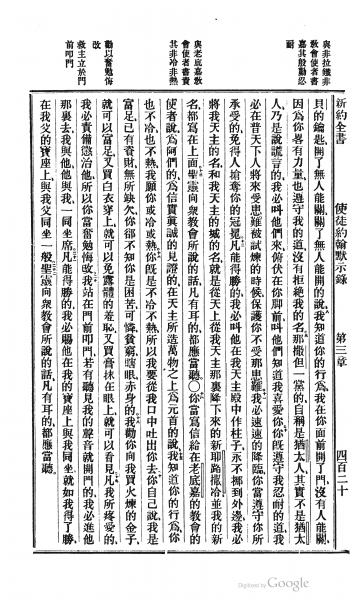 新約全書 使徒約翰默示錄 第三章 四百二十
與非拉鐵非
敎會使者書
嘉其殷勤忍
耐
與老底嘉敎
會者使者書責
其非冷非熱
勸以奮勉悔
改
救主立於門
前叩門
貝的鑰匙開了無人能關關了無人能開的說我知道你的行爲我在你面前開了門沒有人能關
因爲你畧有力量也遵守我的道沒有拒絕我的名那撒但一黨的自稱是猶太人其實不是猶太
人乃是說謊言的我必叫他們來俯伏在你脚前叫他們知道我喜愛你你旣遵守我忍耐的道我
必在普天下人將來受患難被試煉的時候保護你不受那患難我必速速的降臨你當遵守你所
承受的免得人搶奪你的冠冕凡能得勝的我必叫他在我天主殿中作柱子永不挪到外邊我必
將我天主的名和我天主的城的名就是從天上從我天主那裏降下來的新耶路撒冷並我的新
名都寫在上面聖靈向衆敎會所說的話凡有耳的都應當聽○你當寫信給在老底嘉的敎會的
使者說爲阿們的爲信實眞誠的見證的在天主所造萬物之上爲元首的說我知道你的行爲你
也不冷也不熱我願你或冷或熱你旣是不冷不熱所以我要從我口中吐出你去你自己說我是
富足已有貲財無所缺欠你卻不知你是困苦可憐貧窮瞎眼赤身的我勸你向我買火煉的金子
就可以富足又買白衣穿上就可以免露體的羞恥又買膏抹在眼上就可以看見凡我所疼愛的
我必責備懲治他所以你當奮勉悔改我站在門前叩門若有聽見我的聲音就開門的我必進他
那裏去我與他他與我一同坐席凡能得勝的我必賜他在我的寶座上與我同坐就如我得了勝
在我父的寶座上與我父同坐一般聖靈向衆敎會所說的話凡有耳的都應當聽
Digitized by Google